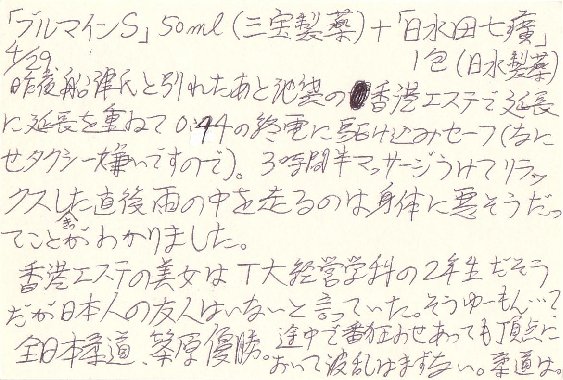 「ブルマインS」50ml(三宝製薬)+「日水田七廣」
4/29 1包(日水製薬)
昨夜船津氏と別れたあと池袋の香港エステで延長
に延長を重ねて0:44の終電に駆け込みセーフ(なに
せタクシー嫌いですので)。3時間半マッサージうけてリラッ
クスした直後雨の中を走るのは身体に悪そうだっ
てことがわかりました。
香港エステの美女はT大経営学科の2年生だそう
だが日本人の友人はいないと言っていた。そうゆーもん…て
全日本柔道、篠原優勝。途中で番狂わせあっても頂点に
おいて波乱はまずない。柔道は。